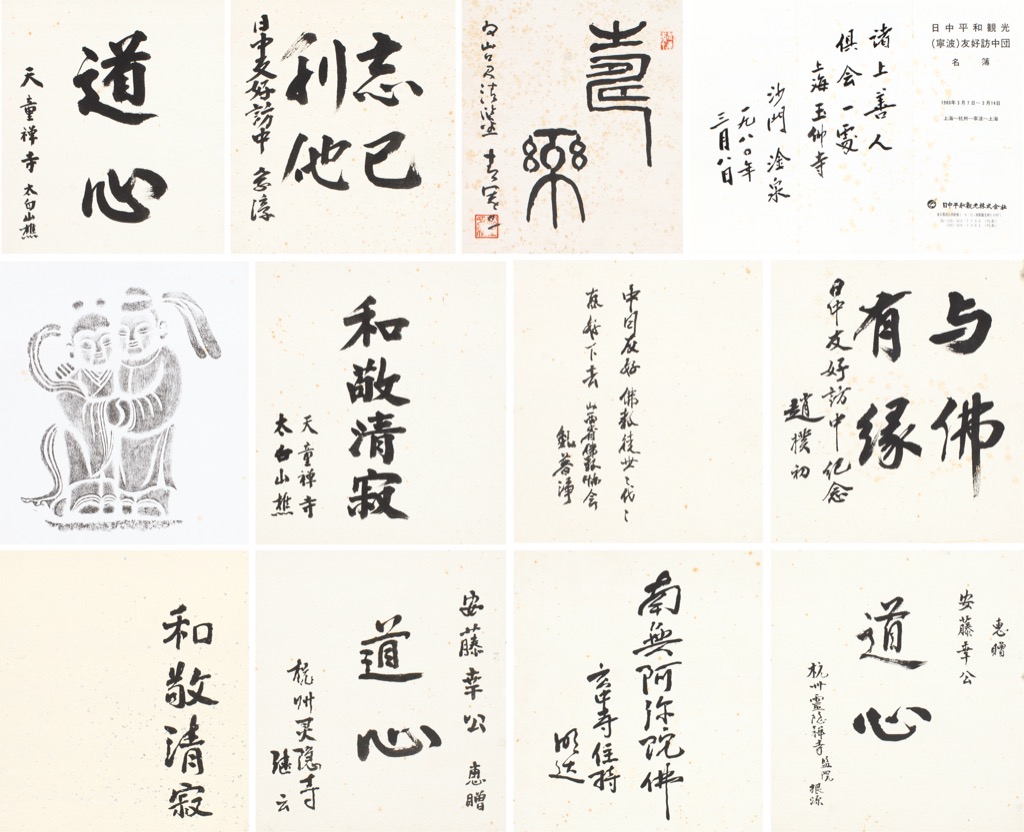 道心
天童禪寺 太白山樵
忘己
利他
日中友好訪中
壽
樂
日中平和観光
(寧波)友好訪中団
名簿
1980年3月7日～3月14日
上海～杭州～寧波～上海
日中平和観光株式会社
诸上善人
俱会一處
上海玉佛寺
沙門 淦泉
一九八〇年
三月八日
和敬清寂
天童禅寺
太白山樵
中日友好 佛教徒世世代代
友好下去
山西省佛教协会
与佛
有缘
日中友好訪中纪念
趙樸初
和敬清寂
安藤幸公 惠贈
道心
杭州灵隐寺
继云
南無阿弥陀佛
玄中寺住持
明达
惠贈
安藤幸公
道心
杭州靈隐禅寺监院 根源